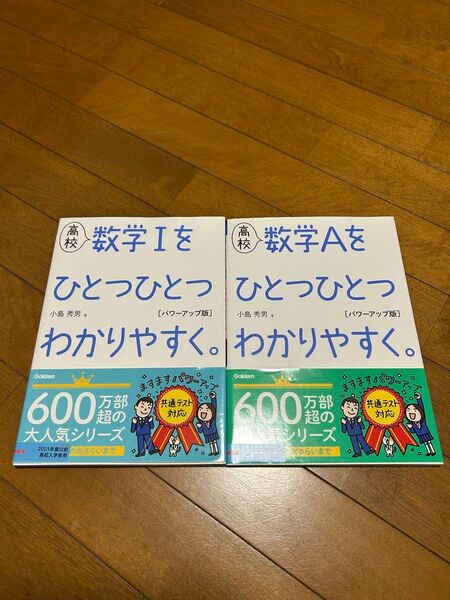 高校
数学Ⅰを
ひとつひとつ
小島 秀男 著
[パワーアップ版]
わかりやすく。
Gakken
600万部
超の
大人気シリーズ
ますますパワーアップ
共通テスト
対応
2021年度以前
高校入学者用
のおさらいまで
高校
数学Aを
ひとつひとつ
小島 秀男 著
[パワーアップ版]
わかりやすく。
Gakken
600万部
超の
気シリーズ
ますますパワーアップ
共通テスト
対応
おさらいまで